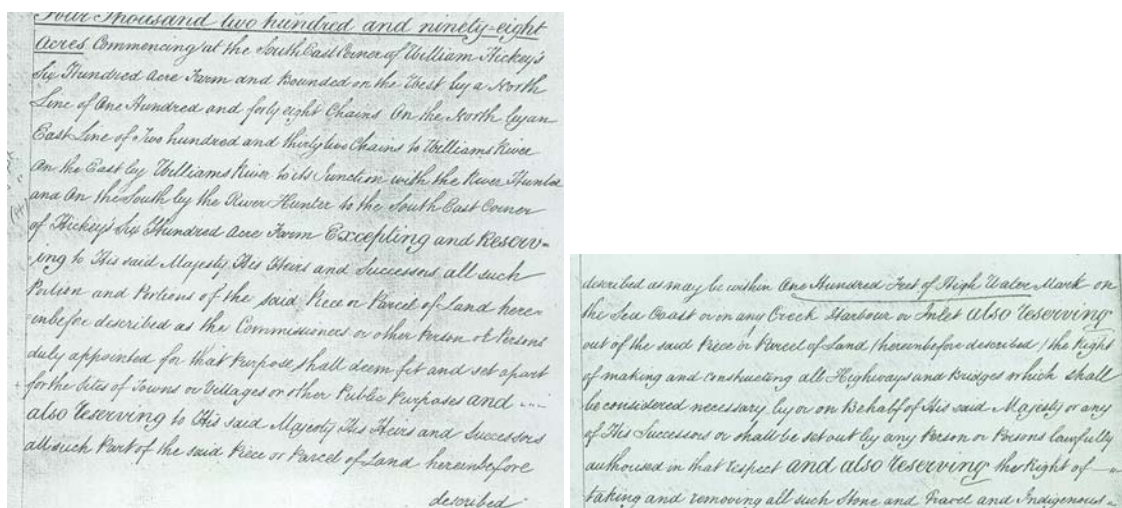 Four Thousand two hundred and ninety-eight
Acres Commencing at the South East Corner of William Hickey's
Six Hundred Acre Farm and Bounded on the West by a North
Line of One Hundred and forty eight Chains On the North by an
East Line of Two hundred and thirty two Chains to Williams River
On the East by Williams River to its Junction with the River Hunter
and On the South by the River Hunter to the South East Corner
of Hickey's Six Hundred Acre Farm Excepting and Reserv-
ing to His said Majesty His Heirs and Successors all such
Portion and Portions of the said Piece or Parcel of Land here-
inbefore described as the Commissioners or other Person or Persons
duly appointed for that Purpose shall deem fit and set apart
for the Sites of Towns or Villages or other Public Purposes and
also Reserving to His said Majesty His Heirs and Successors
all such Part of the said Piece or Parcel of Land hereinbefore
described
described as may be within One Hundred Feet of High Water Mark on
the Sea Coast or in any Creek Harbour or Inlet also Reserving
out of the said Piece or Parcel of Land (hereinbefore described) the Right
of making and constructing all Highways and Bridges which shall
be considered necessary by or on Behalf of His said Majesty or any
of His Successors or shall be set out by any Person or Persons lawfully
authorised in that respect and also Reserving the Right of
taking and removing all such Stone and Gravel and Indigenous